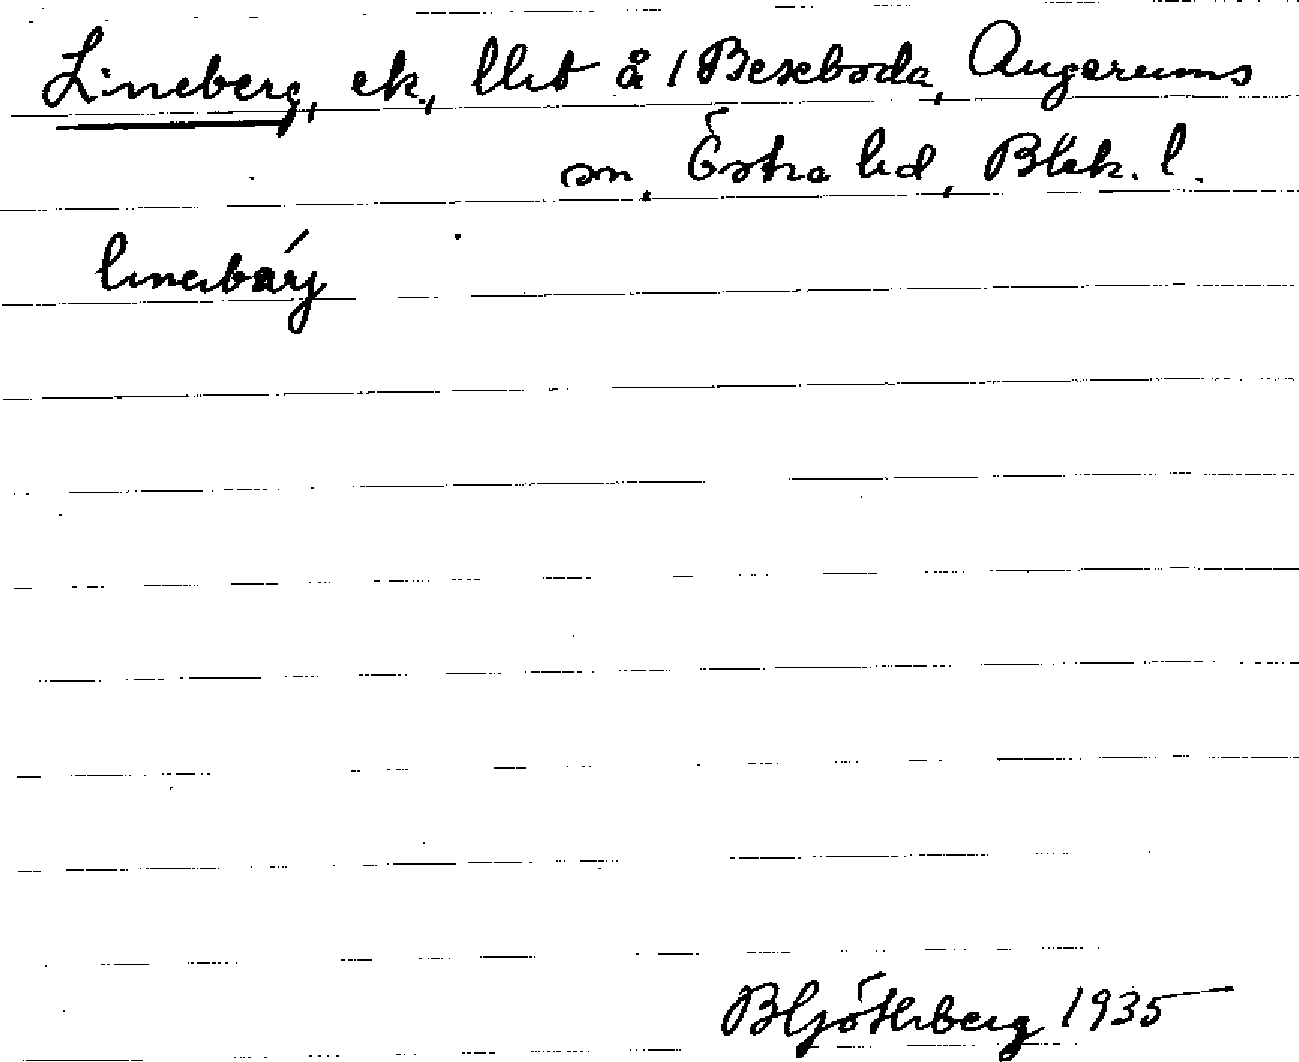 Lineberg, ck., llit å 1 Bexeboda, Augerums
sn. Östra hd, Blek. l.
linabärj
B Göthberg 1935